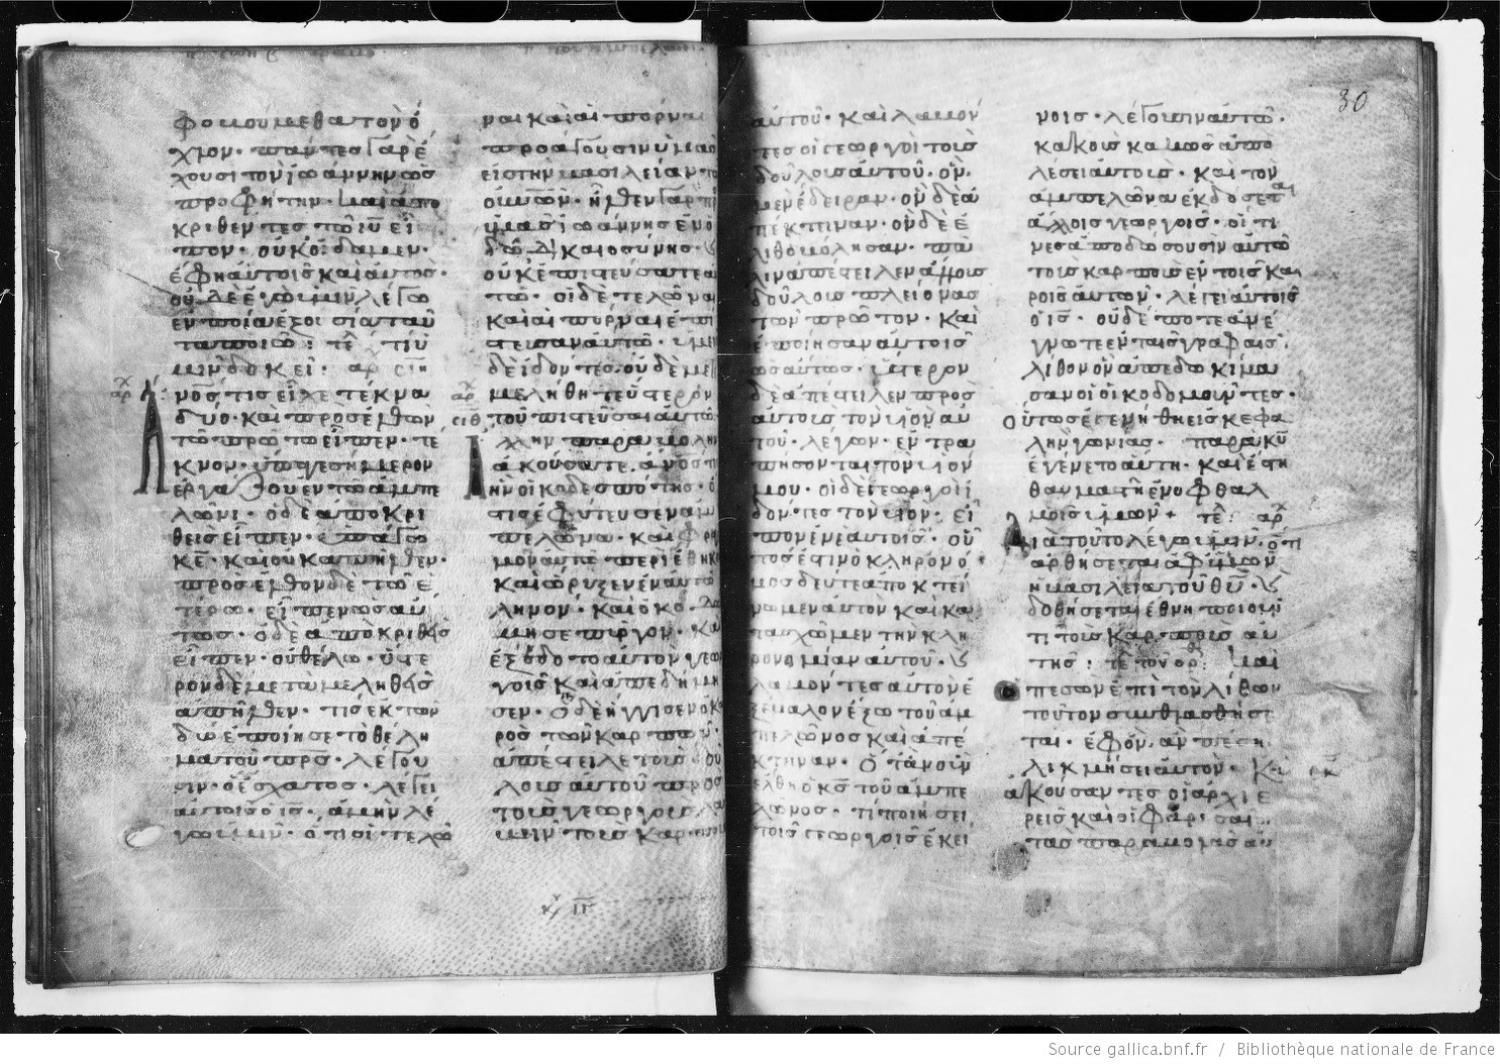 φοβούμεθα τὸν ὄ
χλον· πάντες γὰρ ἔ
χουσι τὸν ἰωάννην ὡς
προφήτην· καὶ ἀπο
κριθέντες τῶ ἰ̅υ̅ εἶ
πον· οὐκ οἴδαμεν·
ἔφη αὐτοῖς καὶ αὐτός·
οὐδὲ ἐγὼ ὑμῖν λέγω
ἐν ποία ἐξουσία ταῦ
τα ποιῶ: τε τί ὑ
μῖν δοκεῖ·
ἄν̅ο̅ς τις εἶχε τέκνα
δύο· καὶ προσελθὼν
τῶ πρώτω εἶπεν· τέ
κνον· ὕπαγε σήμερον
ἐργάζου ἐν τῶ ἀμπε
λῶνι· ὁ δὲ ἀποκρι
θεὶς εἶπεν· ὑπάγω
κ̅ε̅· καὶ οὐκ ἀπῆλθεν·
προσελθὼν δὲ τῶ ἑ
τέρω· εἶπεν ὡσαύ
τως· ὁ δὲ ἀποκριθεὶς
εἶπεν· οὐ θέλω· ὕστε
ρον δὲ μεταμεληθεὶς
ἀπῆλθεν· τίς ἐκ τῶν
δύο ἐποίησε τὸ θέλη
μα τοῦ π̅ρ̅ς̅· λέγου
σιν· ὁ ἔσχατος· λέγει
αὐτοῖς ὁ ι̅ς̅· ἀμὴν λέ
γω ὑμῖν· ὅτι οἱ τελῶ
ναι καὶ αἱ πόρναι
προάγουσιν ὑμᾶς
εἰς τὴν βασιλείαν τῶν
οὐ̅ν̅ῶν· ἦλθεν γὰρ πρ
ὑμᾶς ἰωάννης ἐν ὁ
δῶ δικαιοσύνης· ϗ
οὐκ ἐπιστεύσατε αὐ
τῶ· οἱ δὲ τελῶναι
καὶ αἱ πόρναι ἐπί
στευσαν αὐτῶ· ὑμεῖς
δὲ ἰδόντες· οὐδὲ με
μελήθητε ὕστερον
τοῦ πιστεῦσαι αὐτῶ·
Ἄλλην παραβολὴν
ἀκούσατε. ἄν̅ο̅ς τις
ἦν οἰκοδεσπότης· ὅ
στις ἐφύτευσεν ἀμ
πελῶνα· καὶ φρα
μὸν αὐτῶ περιέθηκε
καὶ ὤρυξεν ἐν αὐτῶ
ληνὸν· καὶ ὠκοδό
μησε πύργον· καὶ
ἐξέδοτο αὐτὸν γεωρ
γοῖς καὶ ἀπεδήμη
σεν· ὅτε δὲ ἤγγισεν ὁ και
ρὸς τῶν καρπῶν·
ἀπέστειλε τοὺς δού
λους αὐτοῦ πρὸς
τοὺς γεωργοὺς λα
βεῖν τοὺς καρποὺς
30
αὐτοῦ· καὶ λαβόν
τες οἱ γεωργοὶ τοὺς
δούλους αὐτοῦ· ὃν
μὲν ἔδειραν· ὃν δὲ ἀ
πέκτειναν· ὃν δὲ ἐ
λιθοβόλησαν· πά
λιν ἀπέστειλεν ἄλλους
δούλους πλείονας
τῶν πρώτων· καὶ
ἐποίησαν αὐτοῖς
ὡσαύτως· ὕστερον
δὲ ἀπέστειλεν πρὸς
αὐτοὺς τὸν υἱὸν αὐ
τοῦ· λέγων· ἐντρα
πήσονται τὸν υἱόν
μου· οἱ δὲ γεωργοὶ ἰ
δόντες τὸν υἱόν· εἶ
πον ἐν ἑαυτοῖς· οὗ
τός ἐστιν ὁ κληρονό
μος δεῦτε ἀποκτεί
νωμεν αὐτὸν καὶ κα
τασχῶμεν τὴν κλη
ρονομίαν αὐτοῦ· ϗ
λαβόντες αὐτὸν ἐ
ξέβαλον ἔξω τοῦ ἀμ
πελῶνος καὶ ἀπέ
κτειναν· ὅταν οὖν
ἔλθη ὁ κ̅ς̅ τοῦ ἀμπε
λῶνος· τί ποιήσει
τοῖς γεωργοῖς ἐκεί
νοις· λέγουσιν αὐτῶ·
κακοὺς κακῶς ἀπο
λέσει αὐτούς· καὶ τὸν
ἀμπελῶνα ἐκδόσεται
ἄλλοις γεωργοῖς· οἵτι
νες ἀποδώσουσιν αὐτῶ
τοὺς καρποὺς ἐν τοῖς και
ροῖς αὐτῶν· λέγει αὐτοῖς
ὁ ι̅ς̅· οὐδέποτε ἀνέ
γνωτε ἐν ταῖς γραφαῖς·
λίθον ὃν ἀπεδοκίμα
σαν οἱ οἰκοδομοῦντες·
οὗτος ἐγενήθη εἰς κεφα
λὴν γωνίας· παρὰ κ̅υ̅
ἐγένετο αὕτη· καὶ ἔστι
θαυμαστὴ ἐν ὀφθαλ
μοῖς ἡμῶν + τε αρχ
Διὰ τοῦτο λέγω ὑμῖν· ὅτι
ἀρθήσεται ἀφ' ὑμῶν
ἡ βασιλεία τοῦ θ̅υ̅· ϗ
δοθήσεται ἔθνει ποιοῦν
τι τοὺς καρποὺς αὐ
τῆς: τε τοῦ ορθ: Καὶ
ὁ πεσὼν ἐπὶ τὸν λίθον
τοῦτον συνθλασθήσε
ται· ἐφ' ὃν ἂν πέση
λικμήσει αὐτόν· Καὶ
ἀκούσαντες οἱ ἀρχιε
ρεῖς καὶ οἱ φαρισαῖοι
τὰς παραβολὰς αὐ